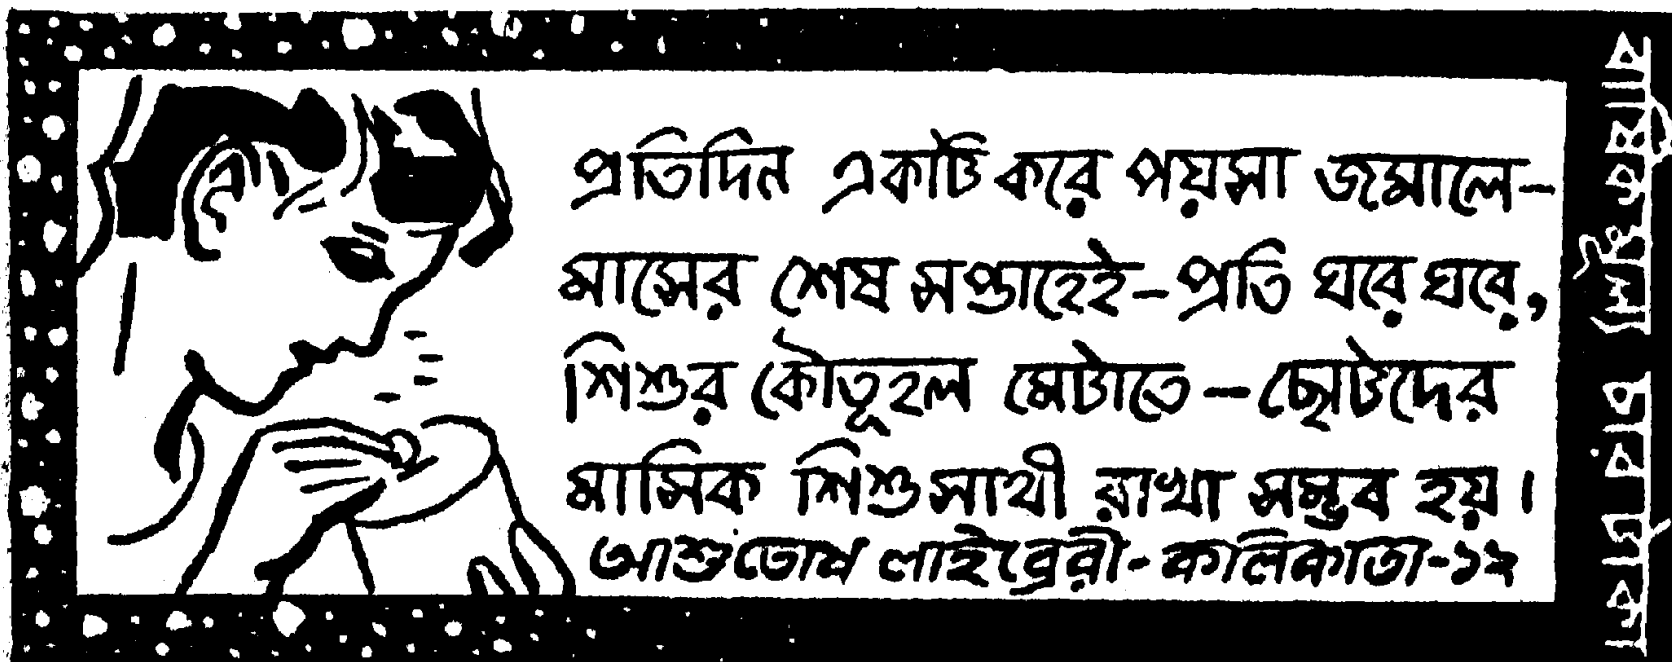 প্রতিদিন একটি করে পয়সা জমালে–
মাসের শেষ সপ্তাহেই–প্রতি ঘরে ঘরে,
শিশুর কৌতূহল মেটাতে–ছোটদের
মাসিক শিশুসাথী রাখা সম্ভব হয়।
আশুতোষ লাইব্রেরী-কলিকাতা-১২
বার্ষিক মূল্য চার টাকা